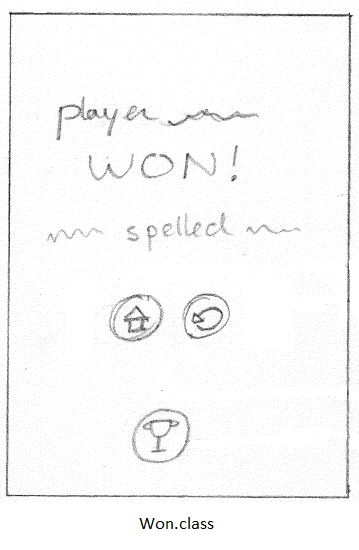 player
WON!
spelled
Won.class